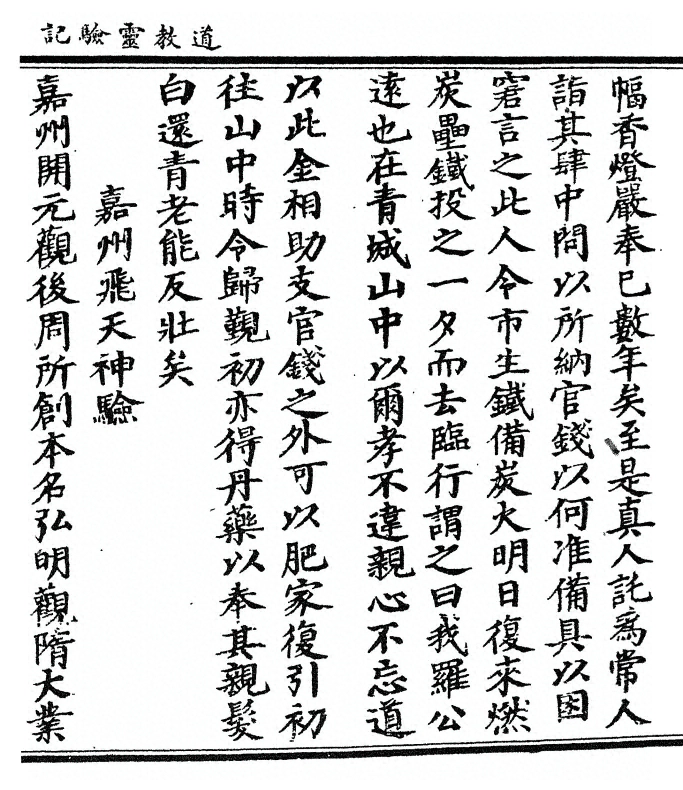 道教靈驗記
幅香燈嚴奉已數年矣至是真人託爲常人
詣其肆中問以所納官錢以何准備具以困
窘言之此人令市生鐵備炭火明日復來燃
炭壘鐵投之一夕而去臨行謂之曰我羅公
遠也在青城山中以爾孝不違親心不忘道
以此金相助支官錢之外可以肥家復引初
往山中時令歸覲初亦得丹藥以奉其親髮
白還青老能反壯矣
嘉州飛天神驗
嘉州開元觀後周所創本名弘明觀隋大業